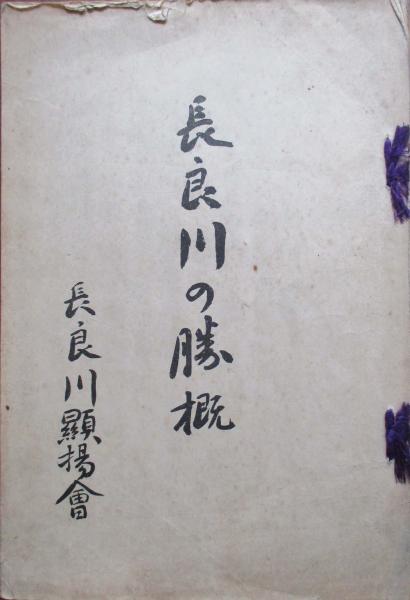 長良川の勝概
長良川顯揚會